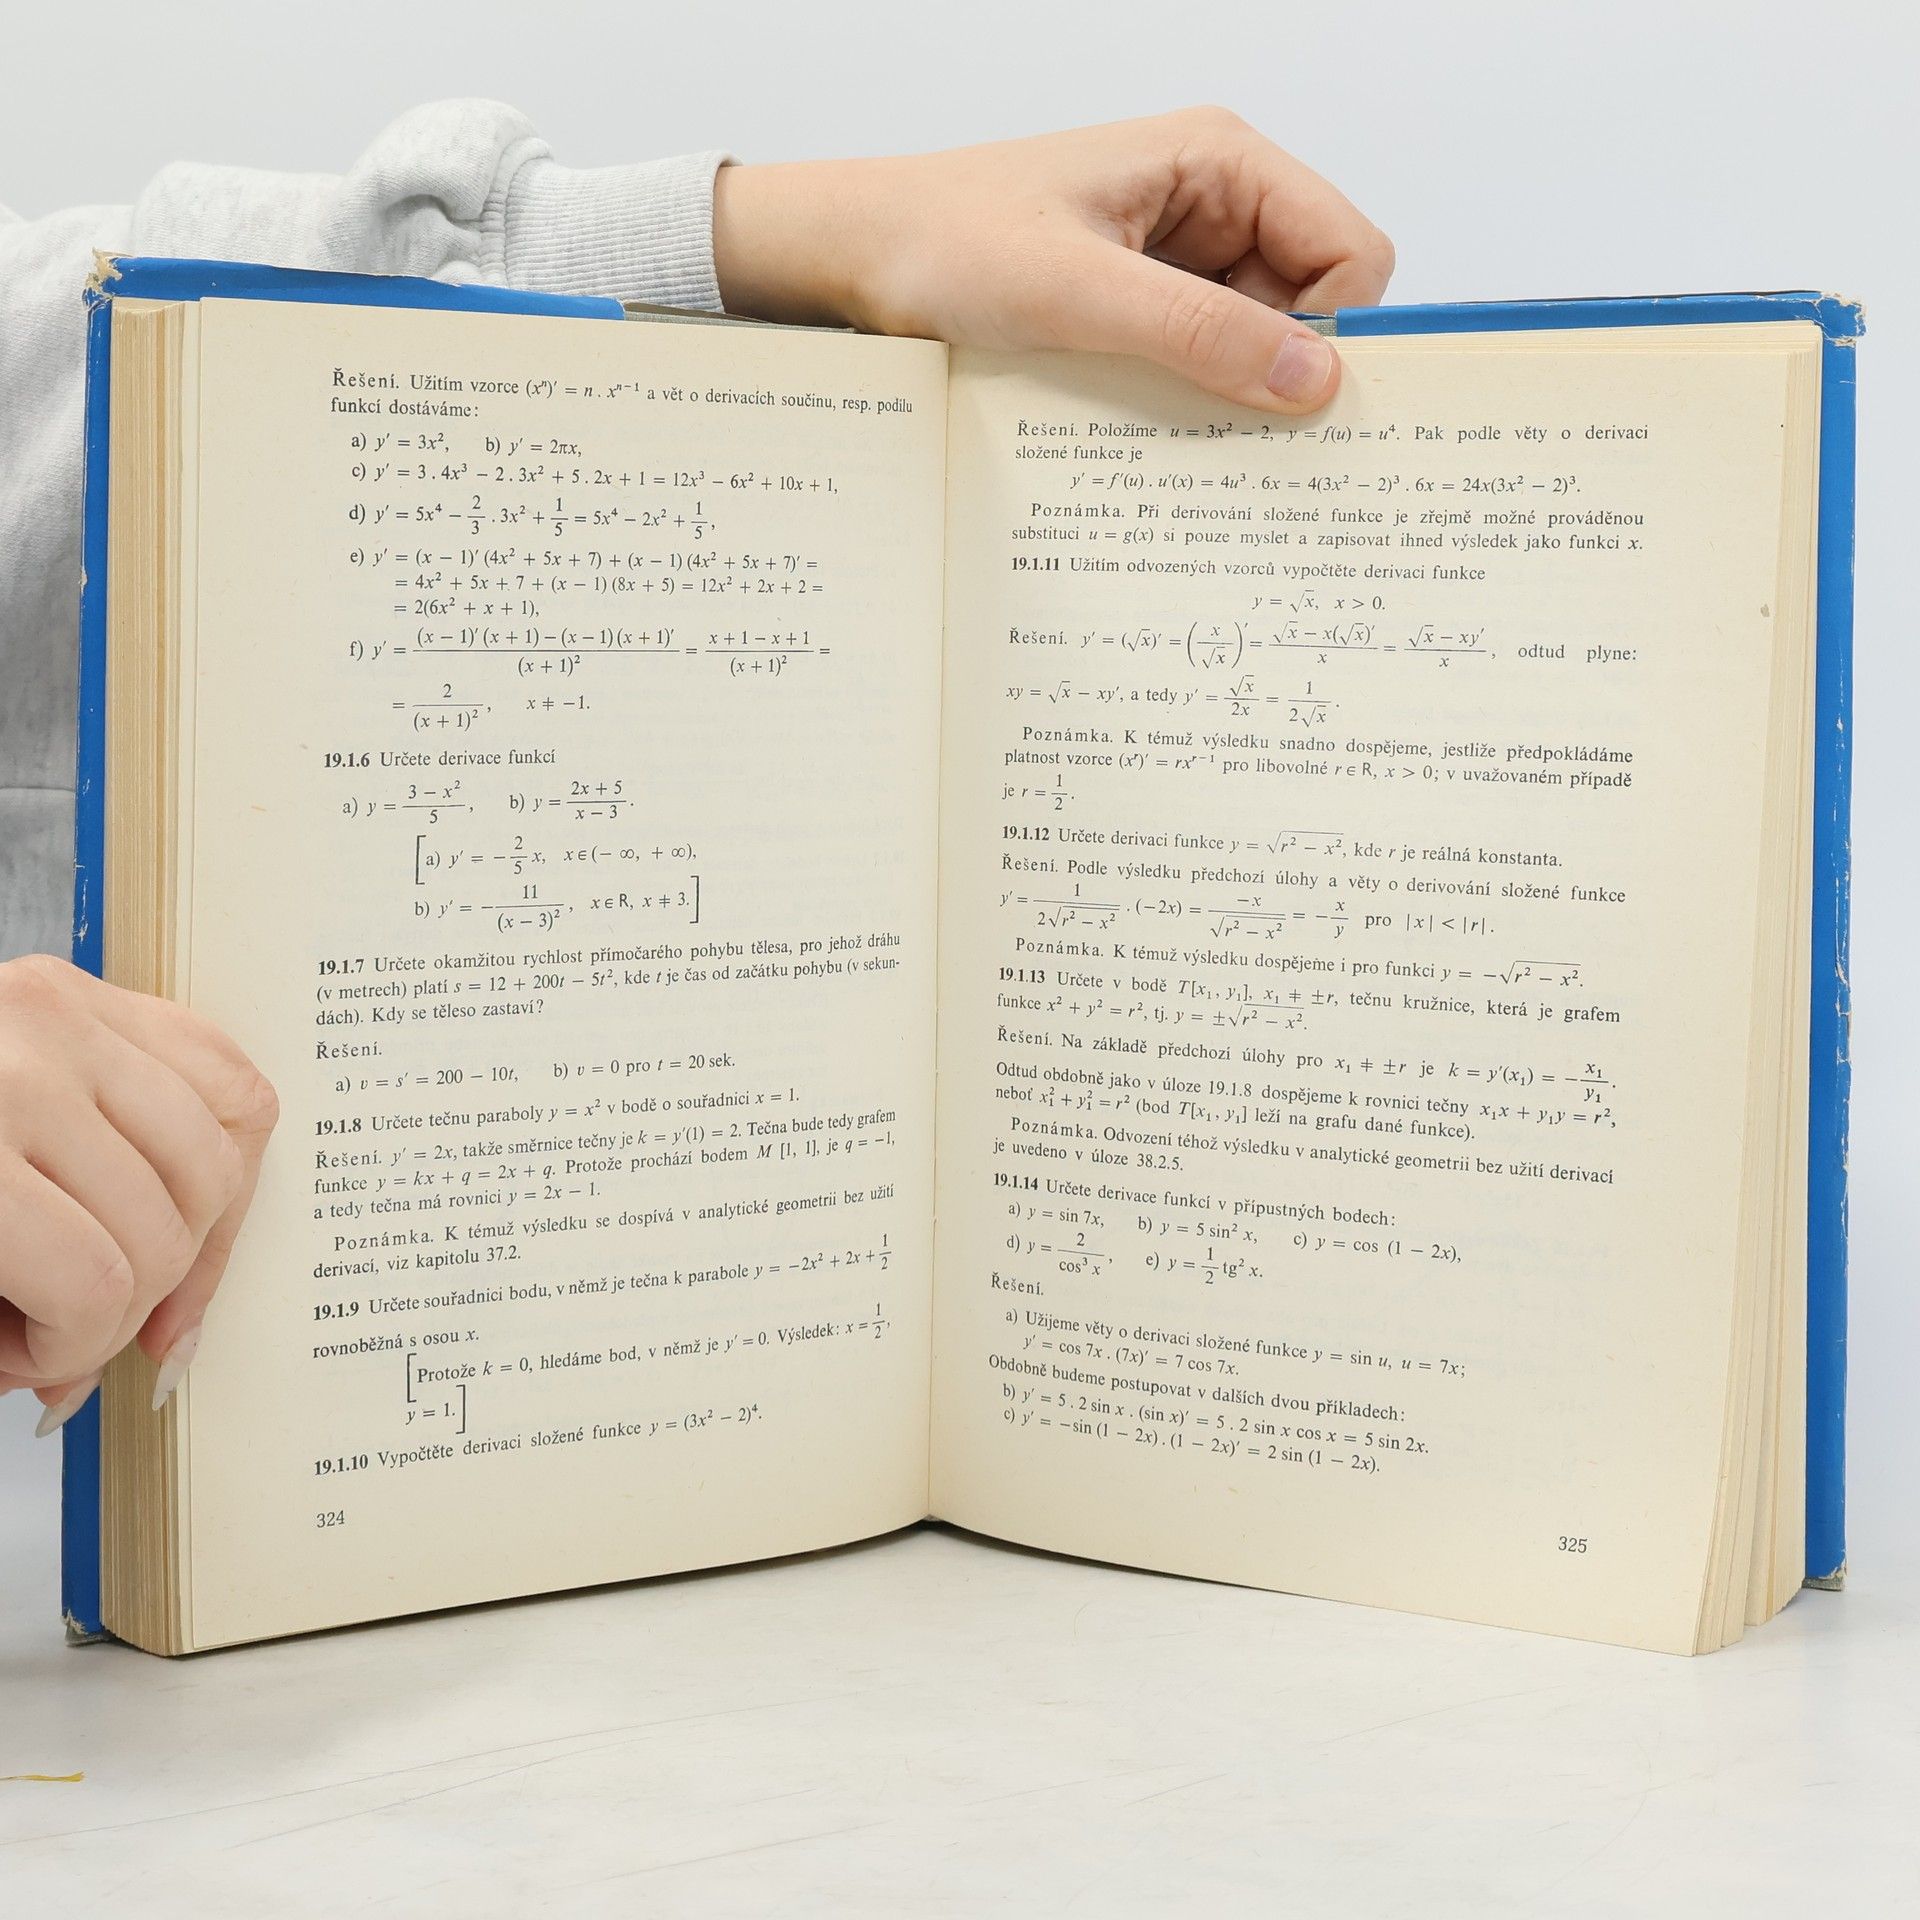 Řešení. Užitím vzorce (xⁿ)′ = n . xⁿ⁻¹ a vět o derivacích součinu, resp. podílu
funkcí dostáváme:
a) y′ = 3x², b) y′ = 2πx,
c) y′ = 3 . 4x³ − 2 . 3x² + 5 . 2x + 1 = 12x³ − 6x² + 10x + 1,
d) y′ = 5x⁴ − 2/3 . 3x² + 1/5 = 5x⁴ − 2x² + 1/5,
e) y′ = (x − 1)′ (4x² + 5x + 7) + (x − 1) (4x² + 5x + 7)′ =
= 4x² + 5x + 7 + (x − 1) (8x + 5) = 12x² + 2x + 2 =
= 2(6x² + x + 1),
f) y′ = ((x − 1)′ (x + 1) − (x − 1) (x + 1)′)/(x + 1)² = (x + 1 − x + 1)/(x + 1)² =
= 2/(x + 1)², x ≠ −1.
19.1.6 Určete derivace funkcí
a) y = (3 − x²)/5, b) y = (2x + 5)/(x − 3).
[a) y′ = −2/5 x, x ∈ (− ∞, + ∞),
b) y′ = −11/(x − 3)², x ∈ R, x ≠ 3.]
19.1.7 Určete okamžitou rychlost přímočarého pohybu tělesa, pro jehož dráhu
(v metrech) platí s = 12 + 200t − 5t², kde t je čas od začátku pohybu (v sekun-
dách). Kdy se těleso zastaví?
Řešení.
a) v = s′ = 200 − 10t, b) v = 0 pro t = 20 sek.
19.1.8 Určete tečnu paraboly y = x² v bodě o souřadnici x = 1.
Řešení. y′ = 2x, takže směrnice tečny je k = y′(1) = 2. Tečna bude tedy grafem
funkce y = kx + q = 2x + q. Protože prochází bodem M [1, 1], je q = −1,
a tedy tečna má rovnici y = 2x − 1.
Poznámka. K témuž výsledku se dospívá v analytické geometrii bez užití
derivací, viz kapitolu 37.2.
19.1.9 Určete souřadnici bodu, v němž je tečna k parabole y = −2x² + 2x + 1/2
rovnoběžná s osou x.
[Protože k = 0, hledáme bod, v němž je y′ = 0. Výsledek: x = 1/2,
y = 1.]
19.1.10 Vypočtěte derivaci složené funkce y = (3x² − 2)⁴.
324
Řešení. Položíme u = 3x² − 2, y = f(u) = u⁴. Pak podle věty o derivaci
složené funkce je
y′ = f′(u) . u′(x) = 4u³ . 6x = 4(3x² − 2)³ . 6x = 24x(3x² − 2)³.
Poznámka. Při derivování složené funkce je zřejmě možné prováděnou
substituci u = g(x) si pouze myslet a zapisovat ihned výsledek jako funkci x.
19.1.11 Užitím odvozených vzorců vypočtěte derivaci funkce
y = √x, x > 0.
Řešení. y′ = (√x)′ = (x/√x)′ = (√x − x(√x)′)/x = (√x − xy′)/x, odtud plyne:
xy = √x − xy′, a tedy y′ = √x/2x = 1/(2√x).
Poznámka. K témuž výsledku snadno dospějeme, jestliže předpokládáme
platnost vzorce (xʳ)′ = rxʳ⁻¹ pro libovolné r ∈ R, x > 0; v uvažovaném případě
je r = 1/2.
19.1.12 Určete derivaci funkce y = √(r² − x²), kde r je reálná konstanta.
Řešení. Podle výsledku předchozí úlohy a věty o derivování složené funkce
y′ = 1/(2√(r² − x²)) . (−2x) = −x/√(r² − x²) = −x/y pro |x| < |r|.
Poznámka. K témuž výsledku dospějeme i pro funkci y = −√(r² − x²).
19.1.13 Určete v bodě T[x₁, y₁], x₁ ≠ ±r, tečnu kružnice, která je grafem
funkce x² + y² = r², tj. y = ±√(r² − x²).
Řešení. Na základě předchozí úlohy pro x₁ ≠ ±r je k = y′(x₁) = −x₁/y₁.
Odtud obdobně jako v úloze 19.1.8 dospějeme k rovnici tečny x₁x + y₁y = r²,
neboť x₁² + y₁² = r² (bod T[x₁, y₁] leží na grafu dané funkce).
Poznámka. Odvození téhož výsledku v analytické geometrii bez užití derivací
je uvedeno v úloze 38.2.5.
19.1.14 Určete derivace funkcí v přípustných bodech:
a) y = sin 7x, b) y = 5 sin² x, c) y = cos (1 − 2x),
d) y = 2/cos³ x, e) y = 1/2 tg² x.
Řešení.
a) Užijeme věty o derivaci složené funkce y = sin u, u = 7x;
y′ = cos 7x . (7x)′ = 7 cos 7x.
Obdobně budeme postupovat v dalších dvou příkladech:
b) y′ = 5 . 2 sin x . (sin x)′ = 5 . 2 sin x cos x = 5 sin 2x.
c) y′ = −sin (1 − 2x) . (1 − 2x)′ = 2 sin (1 − 2x).
325